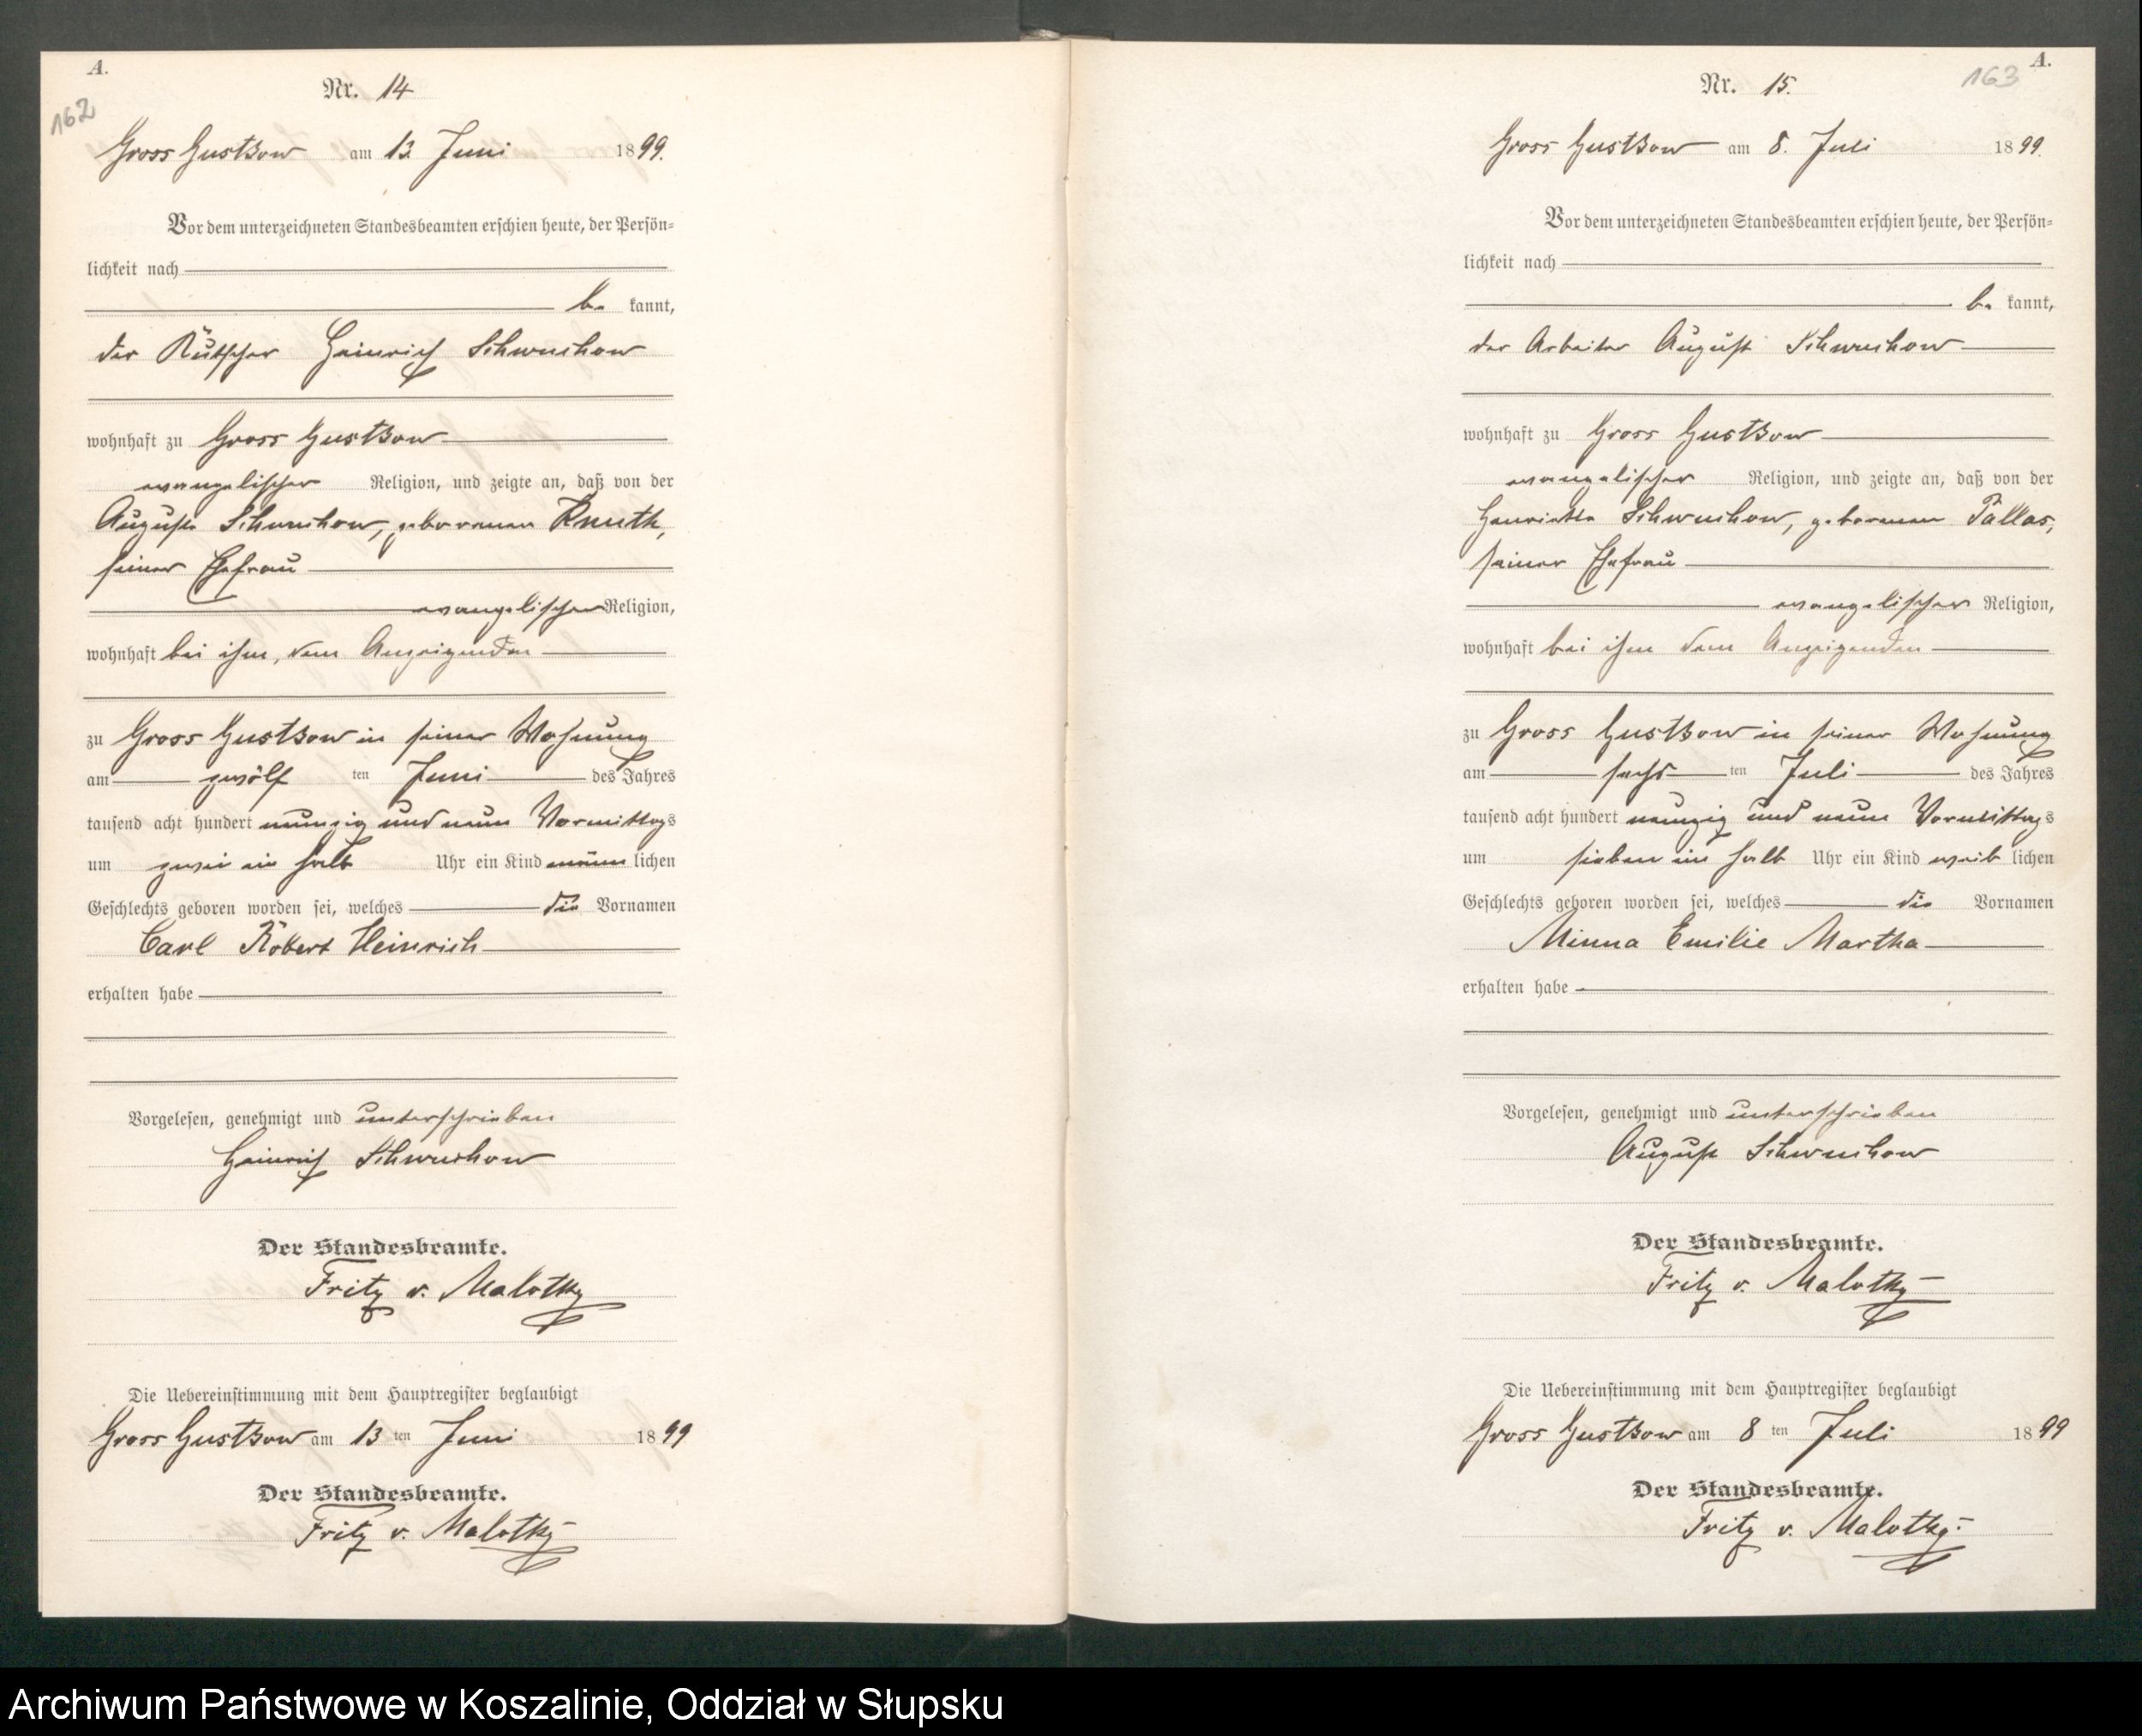 A.
162
Nr. 14
Gross Gustkow am 13. Juni 1899.
Vor dem unterzeichneten Standesbeamten erschien heute, der Persön-
lichkeit nach
be kannt,
der Kutscher Heinrich Schwuchow
wohnhaft zu Gross Gustkow
evangelischer Religion, und zeigte an, daß von der
Auguste Schwuchow, geborenen Knuth,
seiner Ehefrau
evangelischer Religion,
wohnhaft bei ihm, dem Anzeigenden
zu Gross Gustkow in seiner Wohnung
am zwölf ten Juni des Jahres
tausend acht hundert neunzig und neun Vormittags
um zwei ein halb Uhr ein Kind männ lichen
Geschlechts geboren worden sei, welches die Vornamen
Carl Robert Heinrich
erhalten habe
Vorgelesen, genehmigt und unterschrieben
Heinrich Schwuchow
Der Standesbeamte.
Fritz v. Malotky
Die Uebereinstimmung mit dem Hauptregister beglaubigt
Gross Gustkow am 13 ten Juni 1899
Der Standesbeamte.
Fritz v. Malotky
A.
163
Nr. 15.
Gross Gustkow am 8. Juli 1899.
Vor dem unterzeichneten Standesbeamten erschien heute, der Persön-
lichkeit nach
be kannt,
der Arbeiter August Schwuchow
wohnhaft zu Gross Gustkow
evangelischer Religion, und zeigte an, daß von der
Henriette Schwuchow, geborenen Pallas,
seiner Ehefrau
evangelischer Religion,
wohnhaft bei ihm dem Anzeigenden
zu Gross Gustkow in seiner Wohnung
am sechs ten Juli des Jahres
tausend acht hundert neunzig und neun Vormittags
um sieben ein halb Uhr ein Kind weib lichen
Geschlechts geboren worden sei, welches die Vornamen
Minna Emilie Martha
erhalten habe
Vorgelesen, genehmigt und unterschrieben
August Schwuchow
Der Standesbeamte.
Fritz v. Malotky
Die Uebereinstimmung mit dem Hauptregister beglaubigt
Gross Gustkow am 8 ten Juli 1899
Der Standesbeamte.
Fritz v. Malotky.
Archiwum Państwowe w Koszalinie, Oddział w Słupsku